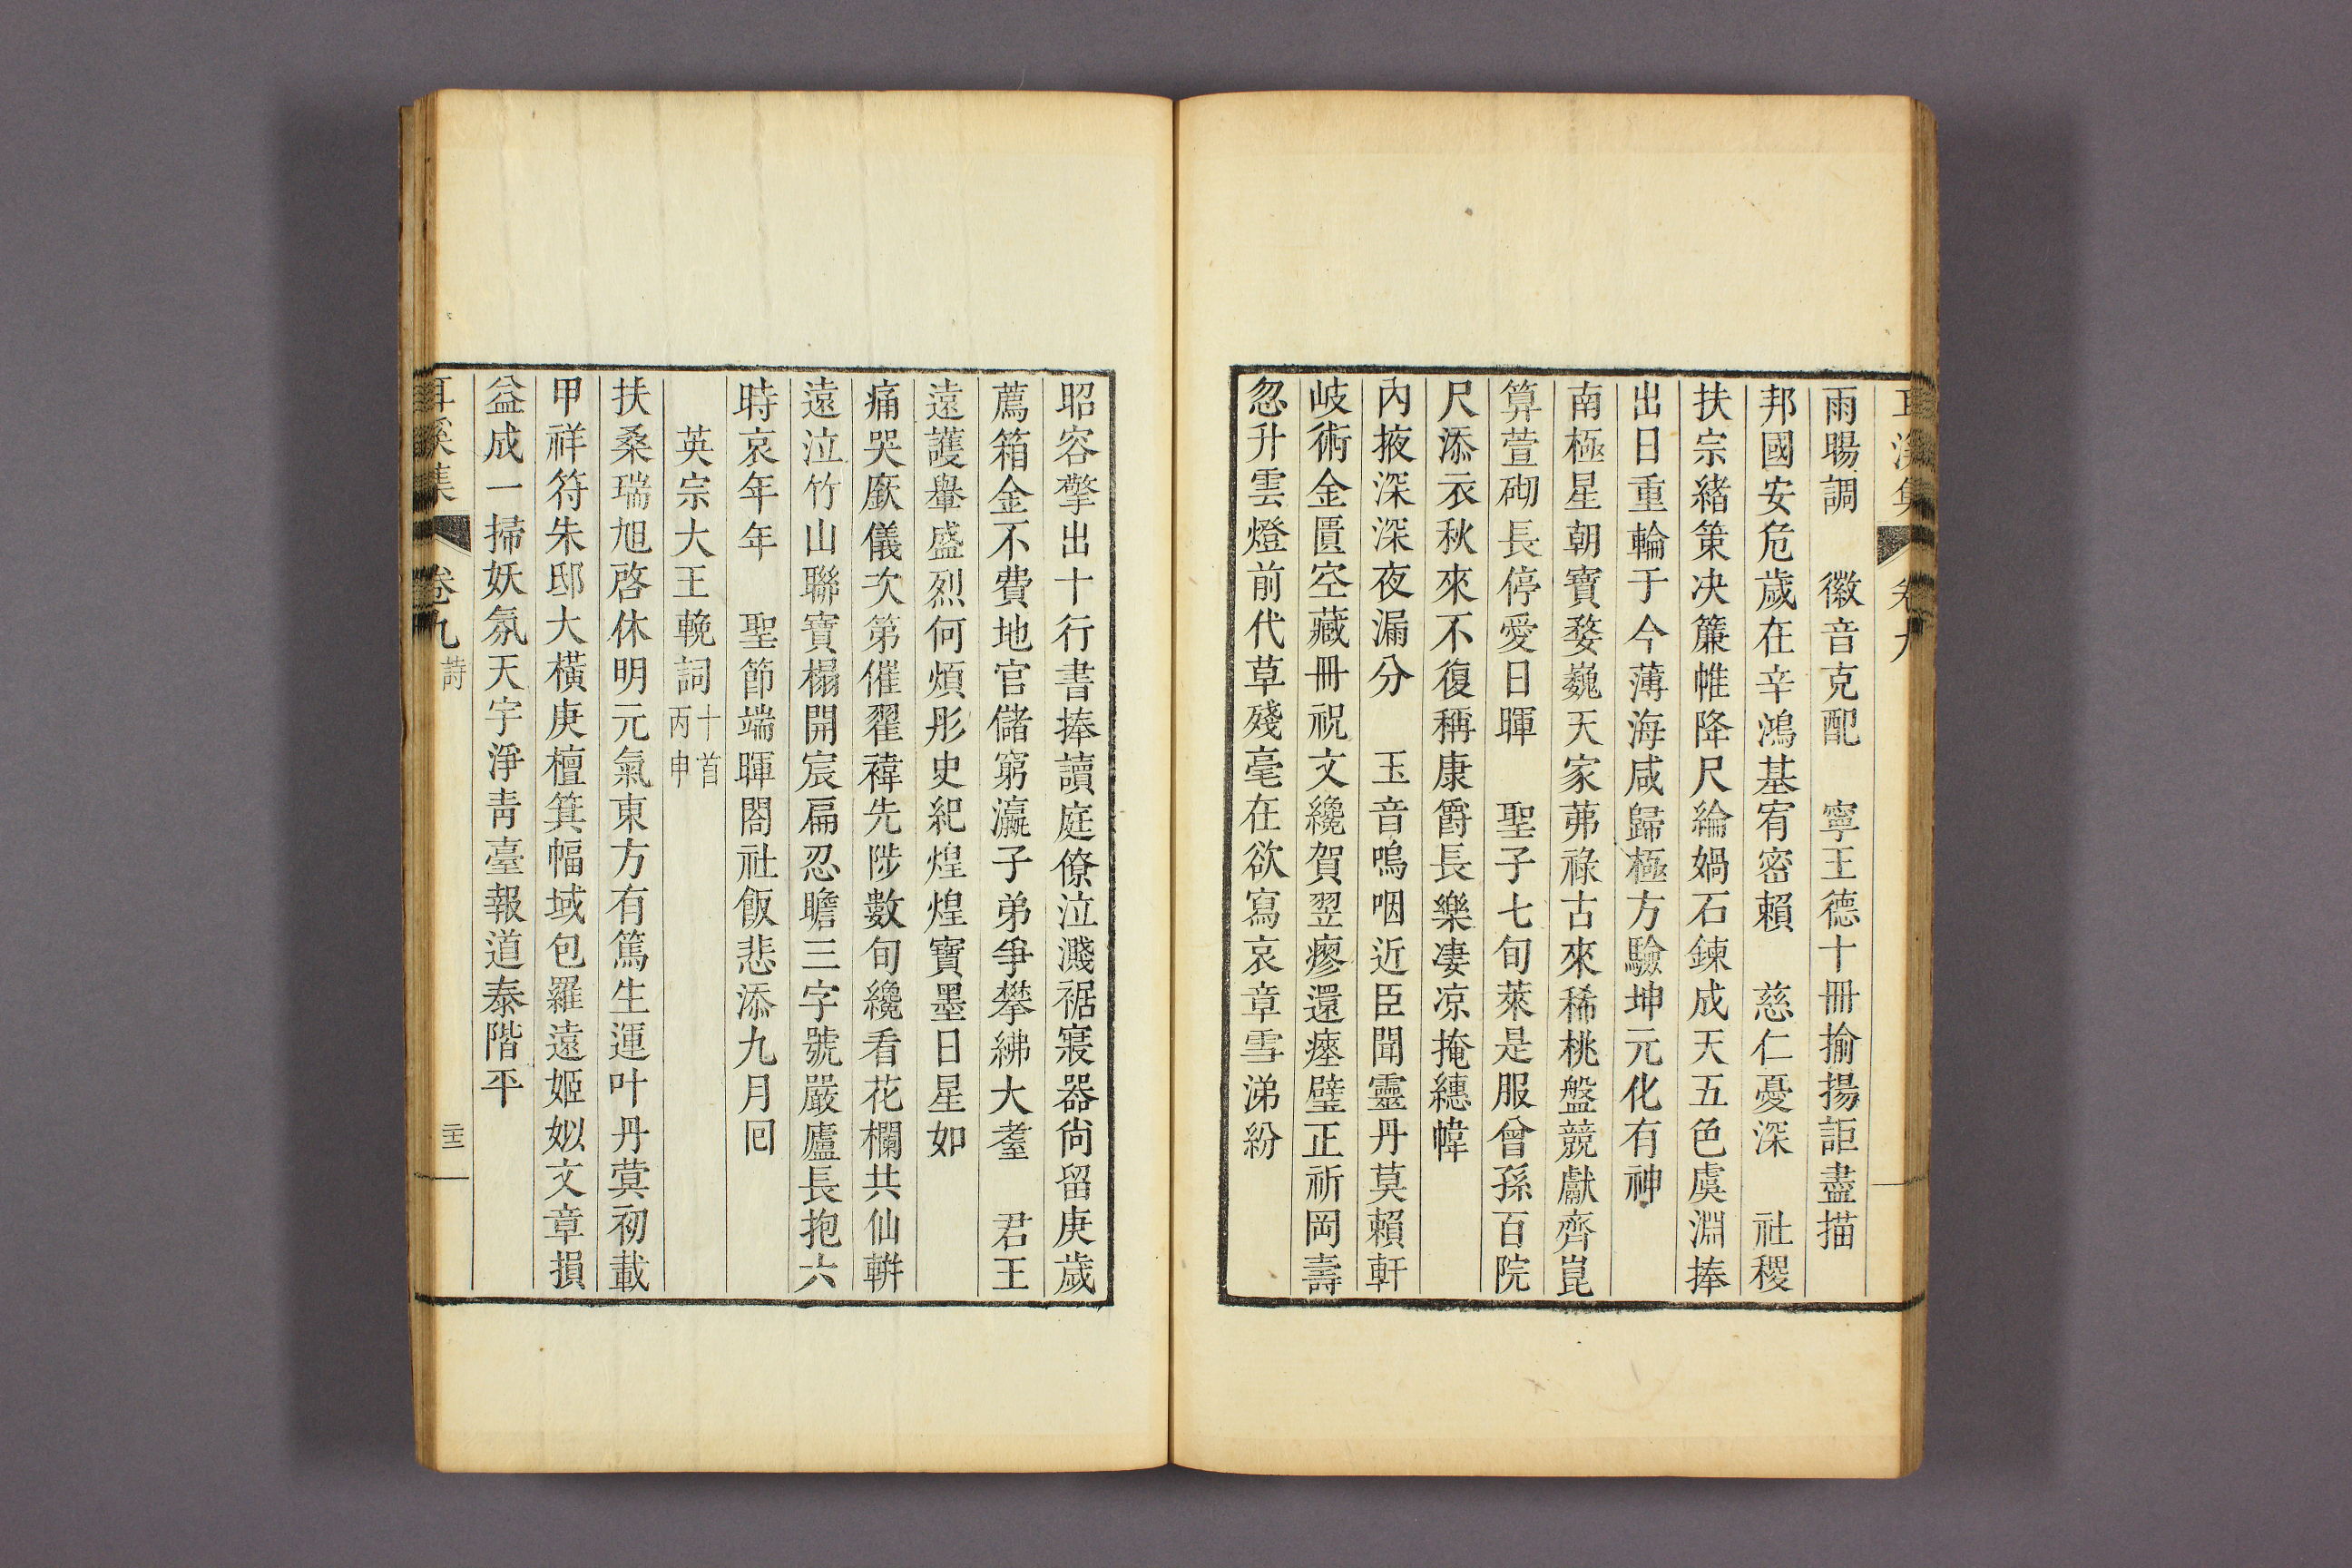 耳溪集 卷九
雨暘調 徽音克配 寧王德十冊揄揚詎盡描
邦國安危歲在辛鴻基宥密賴 慈仁憂深 社稷
扶宗緖策决簾帷降尺綸媧石鍊成天五色虞淵捧
出日重輪于今薄海咸歸極方驗坤元化有神
南極星朝寶婺巍天家茀祿古來稀桃盤競獻齊崑
算萱砌長停愛日暉 聖子七旬萊是服曾孫百院
尺添衣秋來不復稱康爵長樂凄凉掩繐幃
內掖深深夜漏分 玉音嗚咽近臣聞靈丹莫賴軒
岐術金匱空藏冊祝文纔賀翌瘳還瘞璧正祈岡壽
忽升雲燈前代草殘毫在欲寫哀章雪涕紛
昭容擎出十行書捧讀庭僚泣濺裾寢器尙留庚歲
薦箱金不費地官儲窮瀛子弟爭攀紼大耋 君王
遠護轝盛烈何煩彤史紀煌煌寶墨日星如
痛哭廞儀次第催翟褘先陟數旬纔看花欄共仙輧
遠泣竹山聯寶榻開宸扁忍瞻三字號嚴廬長抱六
時哀年年 聖節端暉閤社飯悲添九月回
英宗大王輓詞十首丙申
扶桑瑞旭啓休明元氣東方有篤生運叶丹蓂初載
甲祥符朱邸大橫庚檀箕幅域包羅遠姬姒文章損
益成一掃妖氛天宇淨靑臺報道泰階平
耳溪集 卷九 詩 二十三